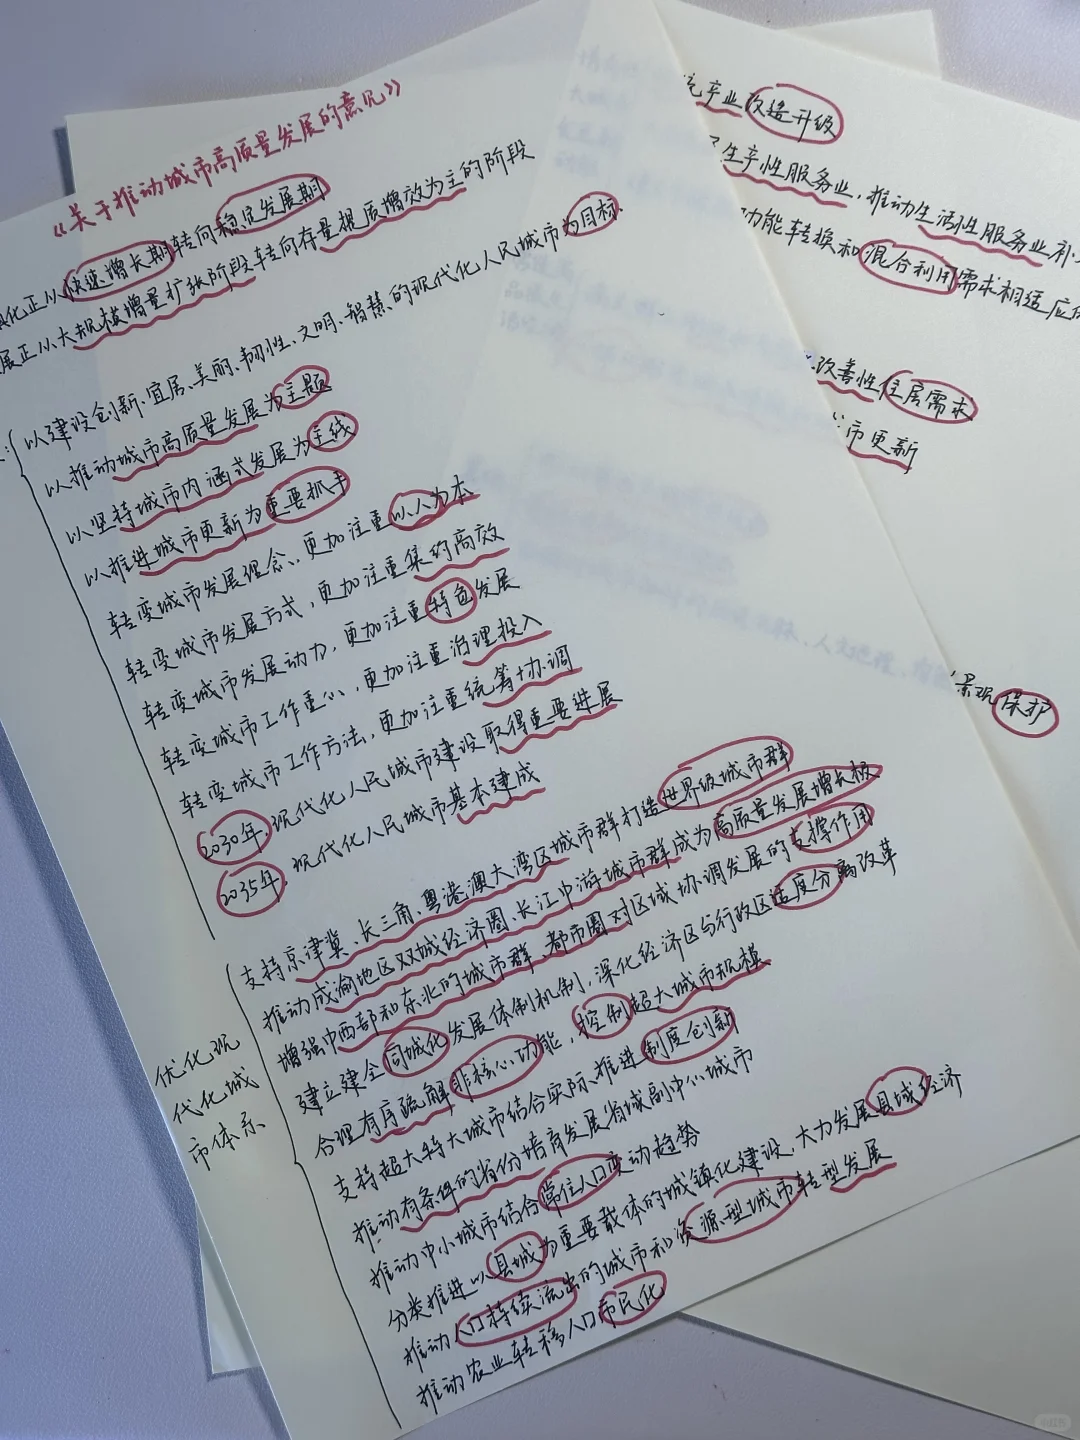 《关于推动城市高质量发展的意见》
化正从快速增长期转向稳定发展期
展正从大规模增量扩张阶段转向存量提质增效为主的阶段
以建设创新、宜居、美丽、韧性、文明、智慧的现代化人民城市为目标
以推动城市高质量发展为主题
以坚持城市内涵式发展为主线
以推进城市更新为重要抓手
转变城市发展理念，更加注重以人为本
转变城市发展方式，更加注重集约高效
转变城市发展动力，更加注重特色发展
转变城市工作重心，更加注重治理投入
转变城市工作方法，更加注重统筹协调
2030年，现代化人民城市建设取得重要进展
2035年，现代化人民城市基本建成
优化现
代化城
市体系
支持京津冀、长三角、粤港澳大湾区城市群打造世界级城市群
推动成渝地区双城经济圈、长江中游城市群成为高质量发展增长极
增强中西部和东北的城市群、都市圈对区域协调发展的支撑作用
建立建全同城化发展体制机制，深化经济区与行政区适度分离改革
合理有序疏解非核心功能，控制超大城市规模
支持超大特大城市结合实际推进制度创新
推动有条件的省份培育发展省域副中心城市
推动中小城市结合常住人口变动趋势
分类推进以县城为重要载体的城镇化建设，大力发展县域经济
推动人口持续流出的城市和资源型城市转型发展
推动农业转移人口市民化
产业改造升级
生产性服务业，推动生活性服务业补
功能转换和混合利用需求相适应的
改善性住房需求
市更新
景观保护